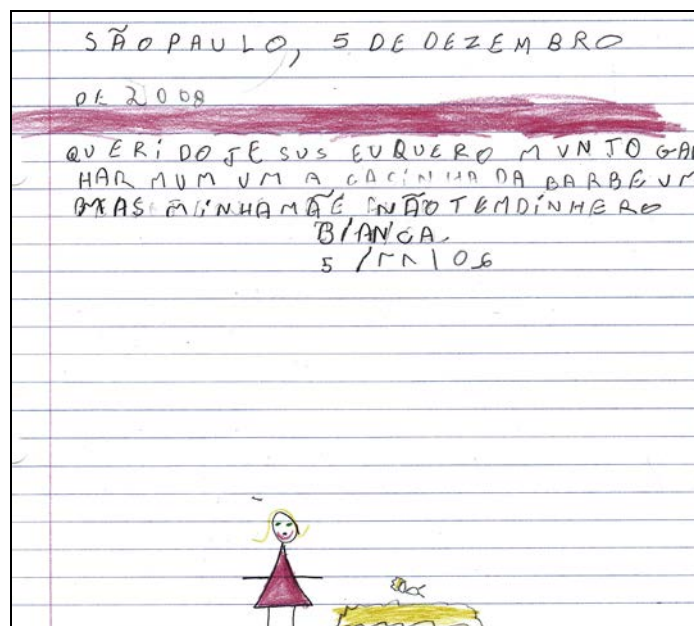 SÃO PAULO, 5 DE DEZEMBRO
DE 2008
QUERIDO JESUS EU QUERO MUNTO GAN
HAR MUM UM A CACINHA DA BARBE UM
MAS MINHA MÃE NÃO TEM DINHERO
BIANCA.
5